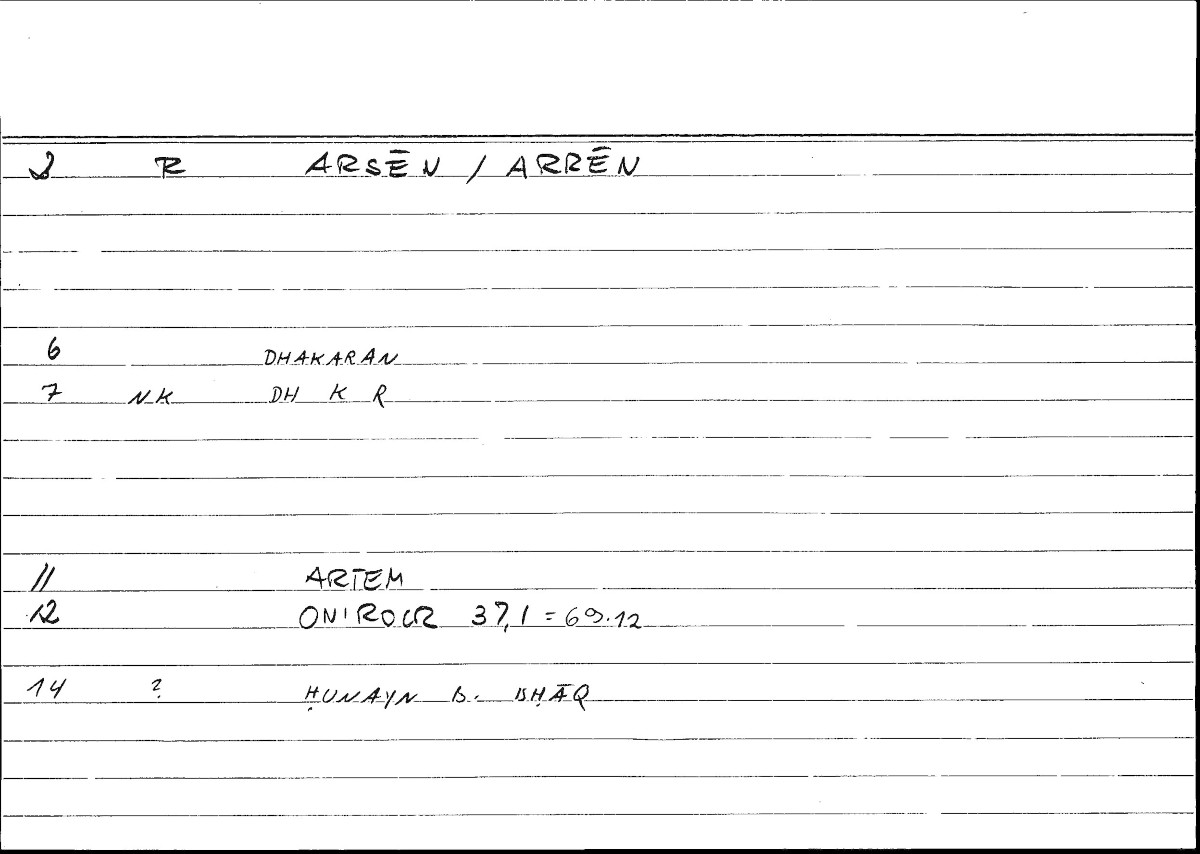 2 R ARSĒN / ARRĒN
6 DHAKARAN
7 NK DH K R
11 ARTEM
12 ONIROCR 37,1 = 69.12
14 ? ḤUNAYN B. ISḤĀQ